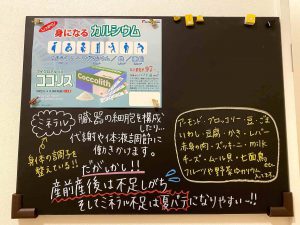 身になるカルシウム
ココリス
Coccolith
ミネラル
臓器の細胞を構成
したり…
代謝や体液調節に
働きかけます。
身体の調子を
整えている!!
だがしかし!!
産前産後は不足しがち
そしてミネラル不足は夏バテになりやすい…!!
アーモンド・ブロッコリー・豆・ごま
いわし・豆腐・かき・レバー
赤身の肉・ズッキーニ・milk
チーズ・ムール貝・七面鳥
フルーツや野菜やカルシウム